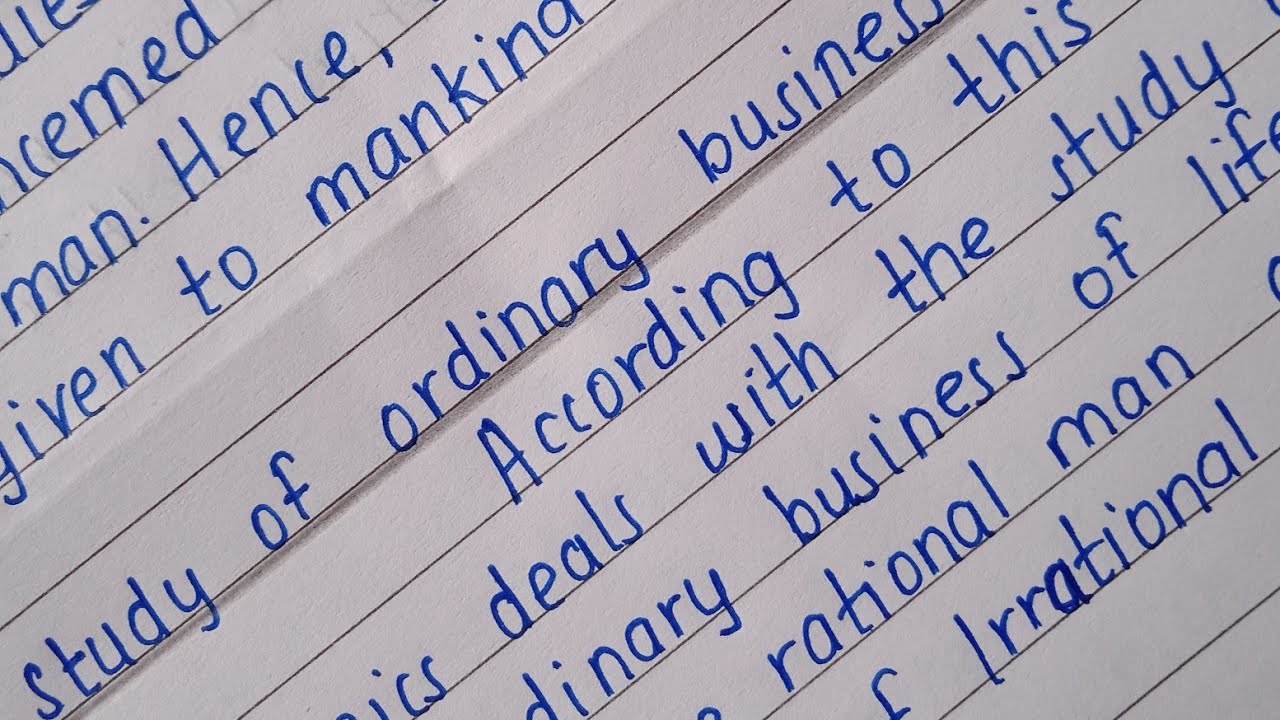 concerned
man. Hence,
given to mankind
study of ordinary business
According to this
deals with the study
business of life
rational man
of Irrational